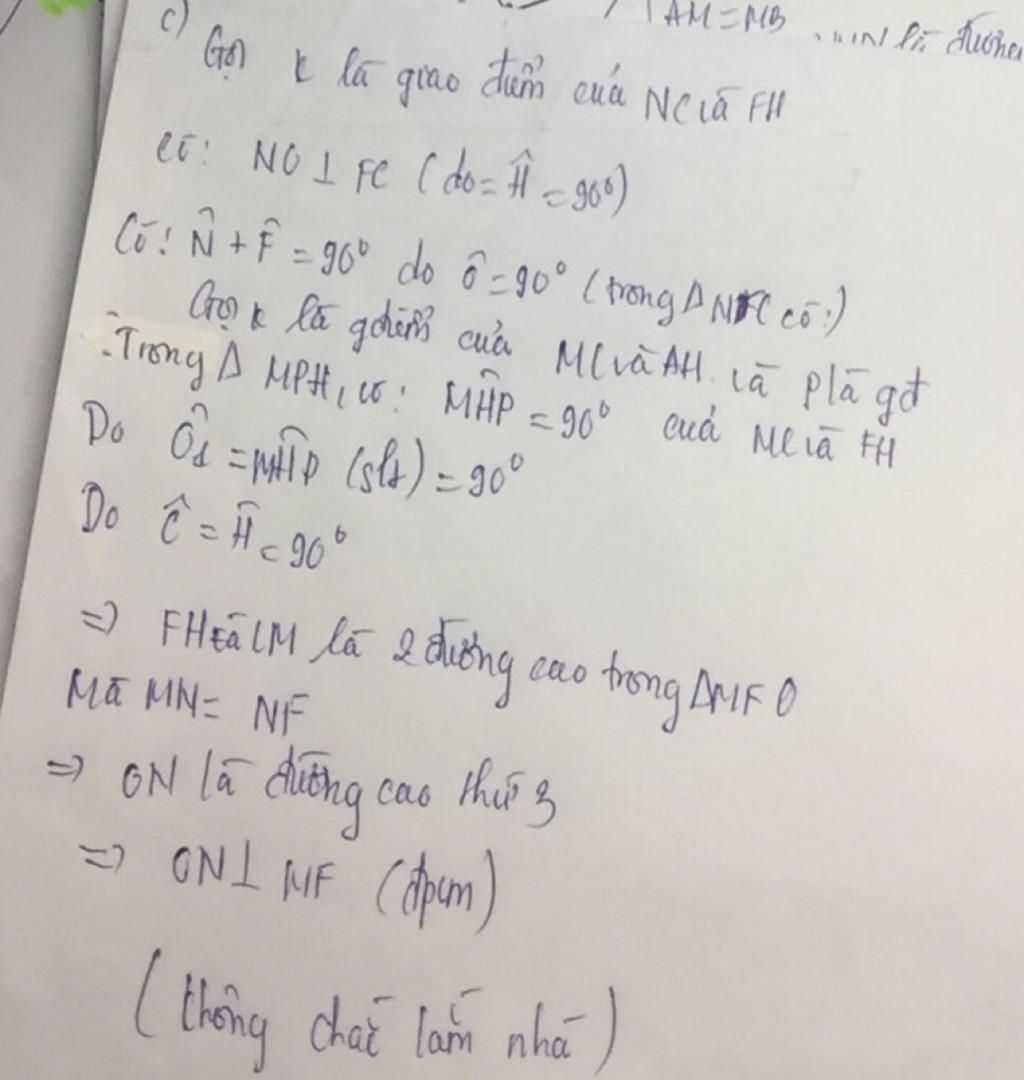 AM = MB ... IN là đường
c) Gọi k là giao điểm của NC và FH
có: NO ⊥ FC (do = Ĥ = 90°)
Có: N̂ + F̂ = 90° do ô = 90° (trong Δ NFC có:)
Gọi k là gđiểm của MC và AH. và P là gđ
của MC và FH
Trong Δ MPH, có: M̂HP = 90°
Do Ô₁ = M̂HP (slt) = 90°
Do Ĉ = Ĥ = 90°
=> FH và CM là 2 đường cao trong ΔMFO
Mà MN = NF
=> ON là đường cao thứ 3
=> ON ⊥ MF (đpcm)
(thông chắc lắm nhá)